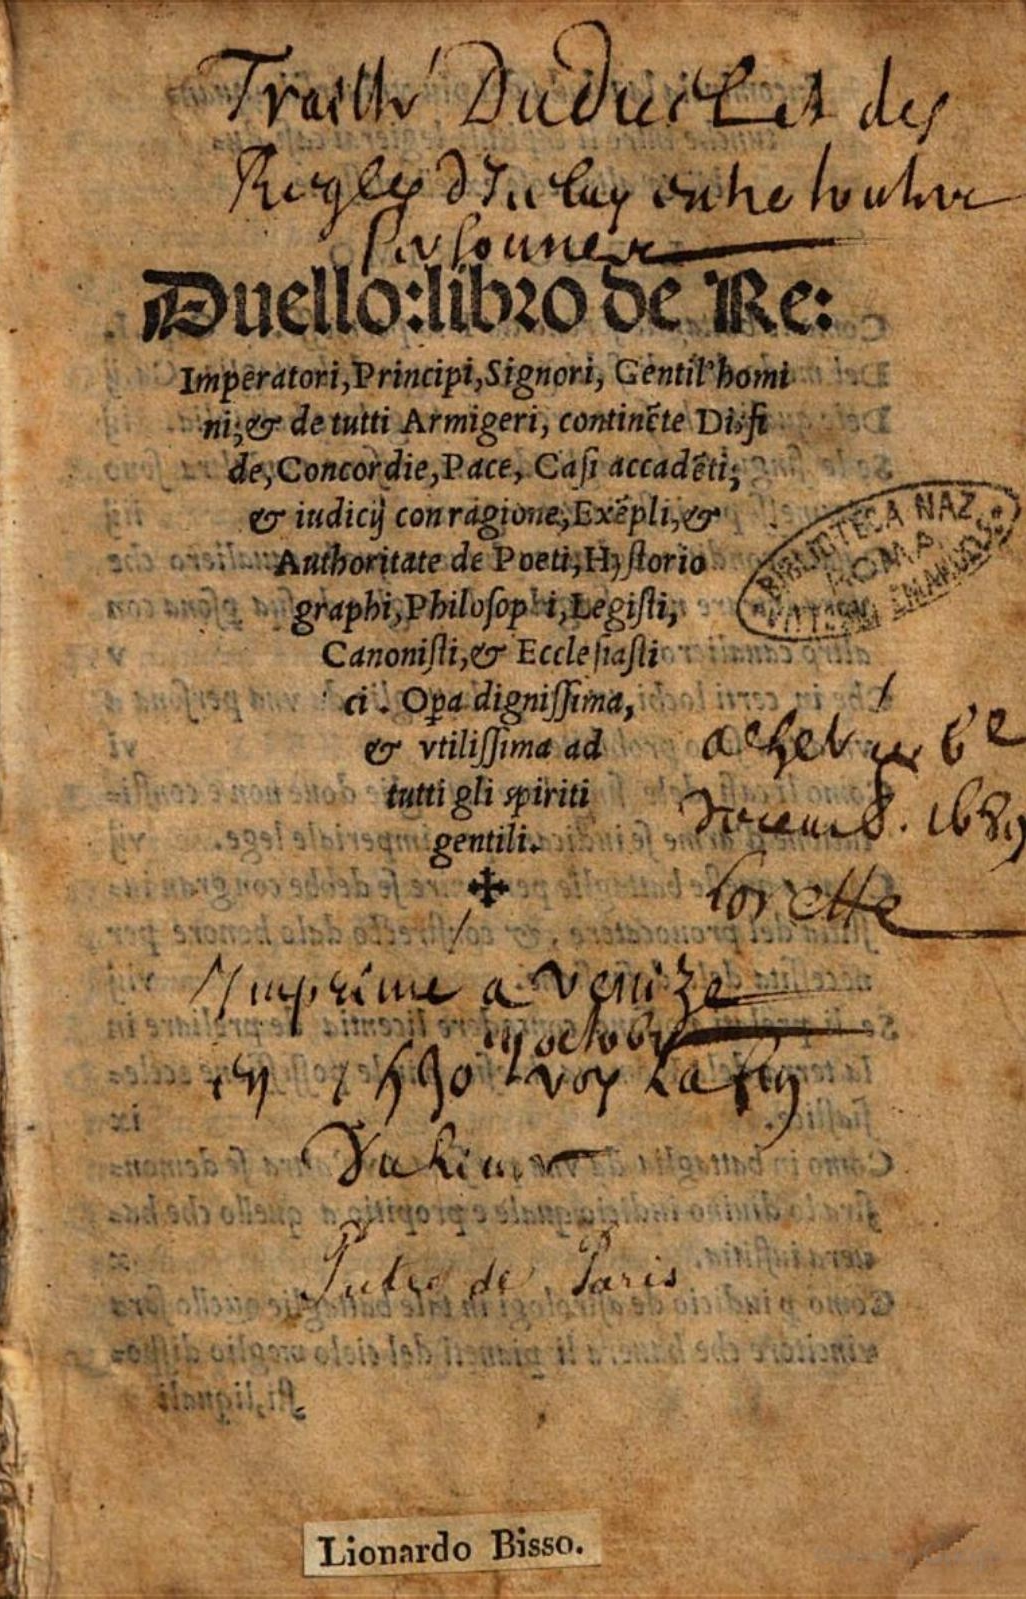 Traitté Du duel et des
Regles d'Iceluy entre toutes
Personnes
Duello: libro de Re:
Imperatori, Principi, Signori, Gentil'homi
ni, & de tutti Armigeri, continẽte Disfi
de, Concordie, Pace, Casi accadẽti,
& iudicij con ragione, Exẽpli, &
Authoritate de Poeti, Hystorio
graphi, Philosop i, Legisti,
Canonisti, & Ecclesiasti
ci. Oꝑa dignissima,
& vtilissima ad
tutti gli spiriti
gentili.
✠
BIBLIOTECA NAZ
ROMA
VITTORIO EMANUELE
achet
lorette
Imprime a Venize
en
de Paris
Lionardo Bisso.